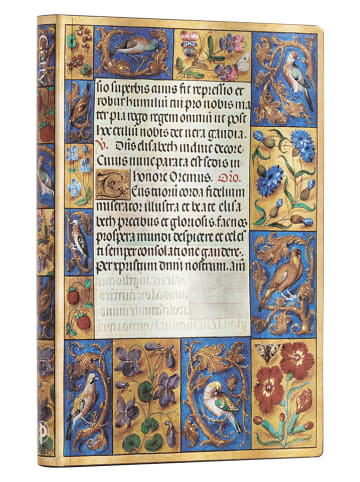 sio superbis cuius fit repressio et
robur humiliū tu pro nobis ma
ter pia rogo regem omniū ut post
hec exiliū nobis det vera gaudia.
V. Dn̄s elisabeth induit decore
Cuius nunc parata est sedis in
honore Oremus. Oro.
Eus tuorū corda fidelium
miserator illustra et beate elisa
beth precibus et gloriosis fac nos
prospera mundi despicere et celes
ti semper consolatione gaudere.
per xpristum dnm̄ nostrum. am̄